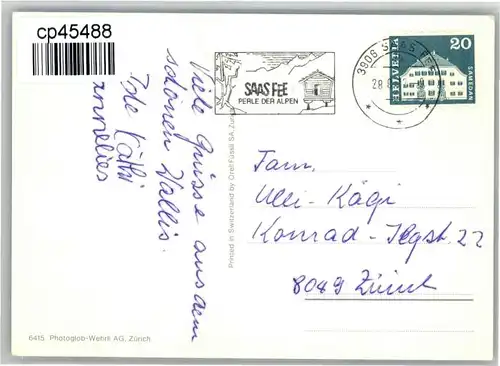 cp45488
Viele Grüsse aus dem
schönen Wallis.
Käthi
Annelies
SAAS FEE
PERLE DER ALPEN
3906 SAAS FEE
28
HELVETIA
20
SAMEDAN
Printed in Switzerland by Orell Füssli SA Zürich
Fam.
Ulli Kägi
Konrad-Ilgst. 22
8049 Zürich
6415 Photoglob-Wehrli AG, Zürich